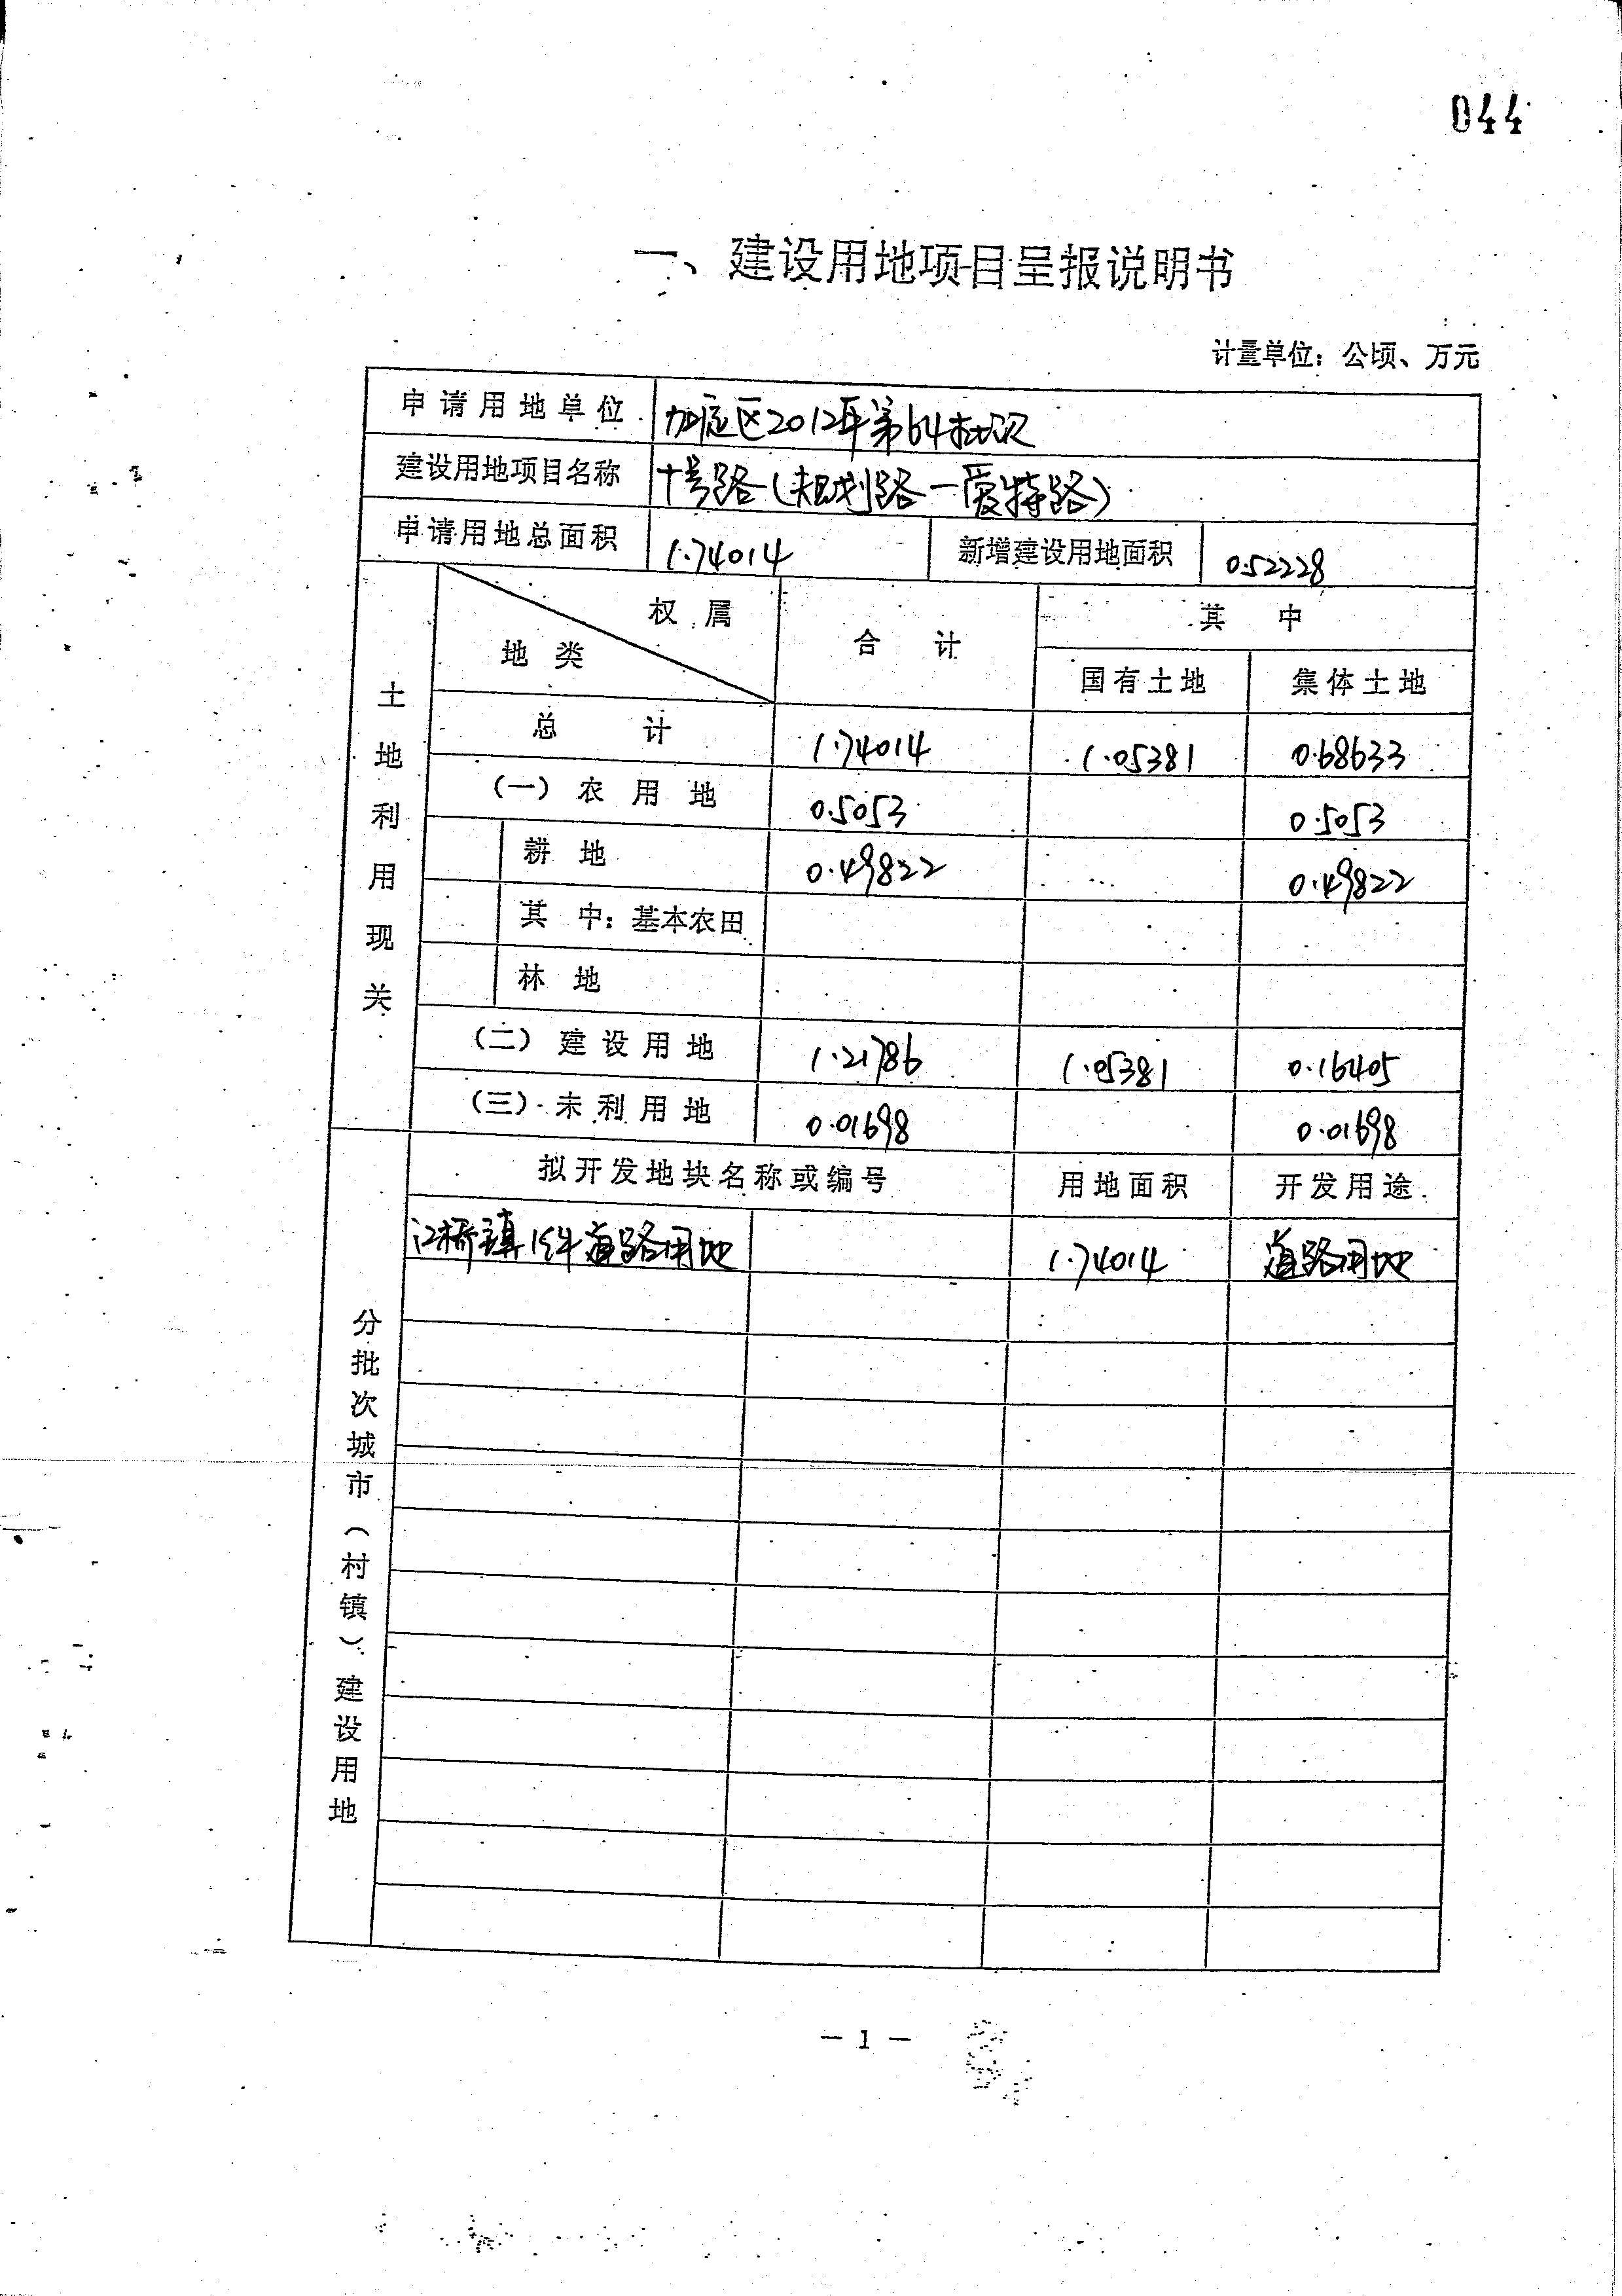 044
一、建设用地项目呈报说明书
计量单位：公顷、万元
申请用地单位 加定区2012年第64批次
建设用地项目名称 十号路（规划路一爱特路）
申请用地总面积 1.74014 新增建设用地面积 0.52228
土地利用现关
权属 地类 合计 其中
国有土地 集体土地
总计 1.74014 1.05381 0.68633
（一）农用地 0.5053 0.5053
耕地 0.49822 0.49822
其中：基本农田
林地
（二）建设用地 1.21786 1.05381 0.16405
（三）未利用地 0.01698 0.01698
分批次城市（村镇）建设用地
拟开发地块名称或编号 用地面积 开发用途
江桥镇1件道路用地 1.74014 道路用地
— 1 —